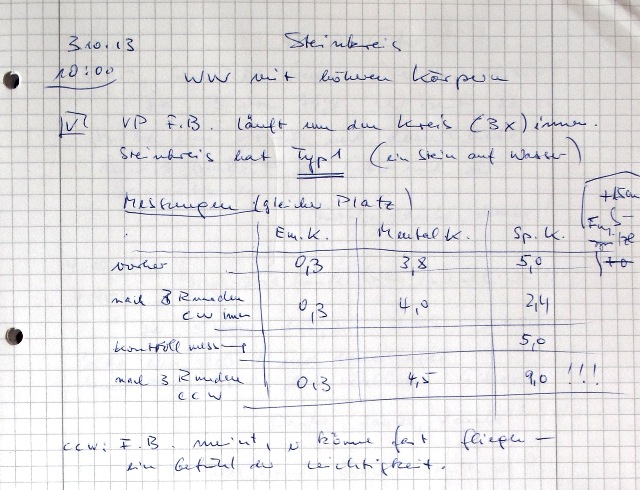 3.10.13 Steinkreis
10:00 WW mit höheren Körpern
V1 VP F.B. läuft um den Kreis (3x) innen.
Steinkreis hat Typ 1 (ein Stein auf Wasser)
Messungen (gleicher Platz)
+15cm
Em.K. Mental K. Sp.K.
vorher 0,3 3,8 5,0
nach 3 Runden
cw innen 0,3 4,0 2,4
Kontrollmessung 5,0
nach 3 Runden 0,3 4,5 9,0 !!!
ccw
ccw: F.B. meint, er könne fast fliegen –
ein Gefühl der Leichtigkeit.